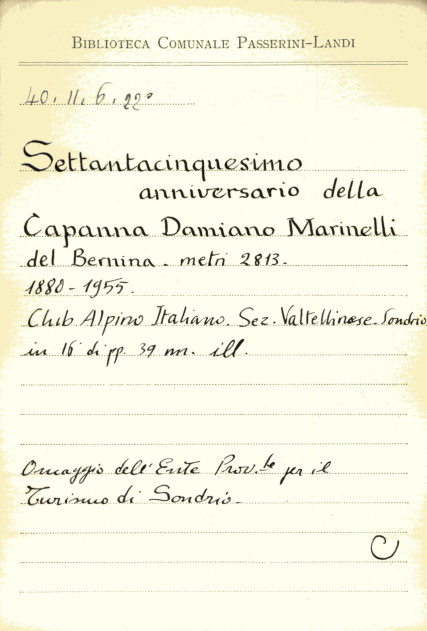 BIBLIOTECA COMUNALE PASSERINI-LANDI
40. II. 6. 22°
Settantacinquesimo
anniversario della
Capanna Damiano Marinelli
del Bernina. metri 2813.
1880-1955.
Club Alpino Italiano. Sez. Valtellinese. Sondrio
in 16 di pp. 39 nn. ill.
Omaggio dell'Ente Prov.le per il
Turismo di Sondrio.
C